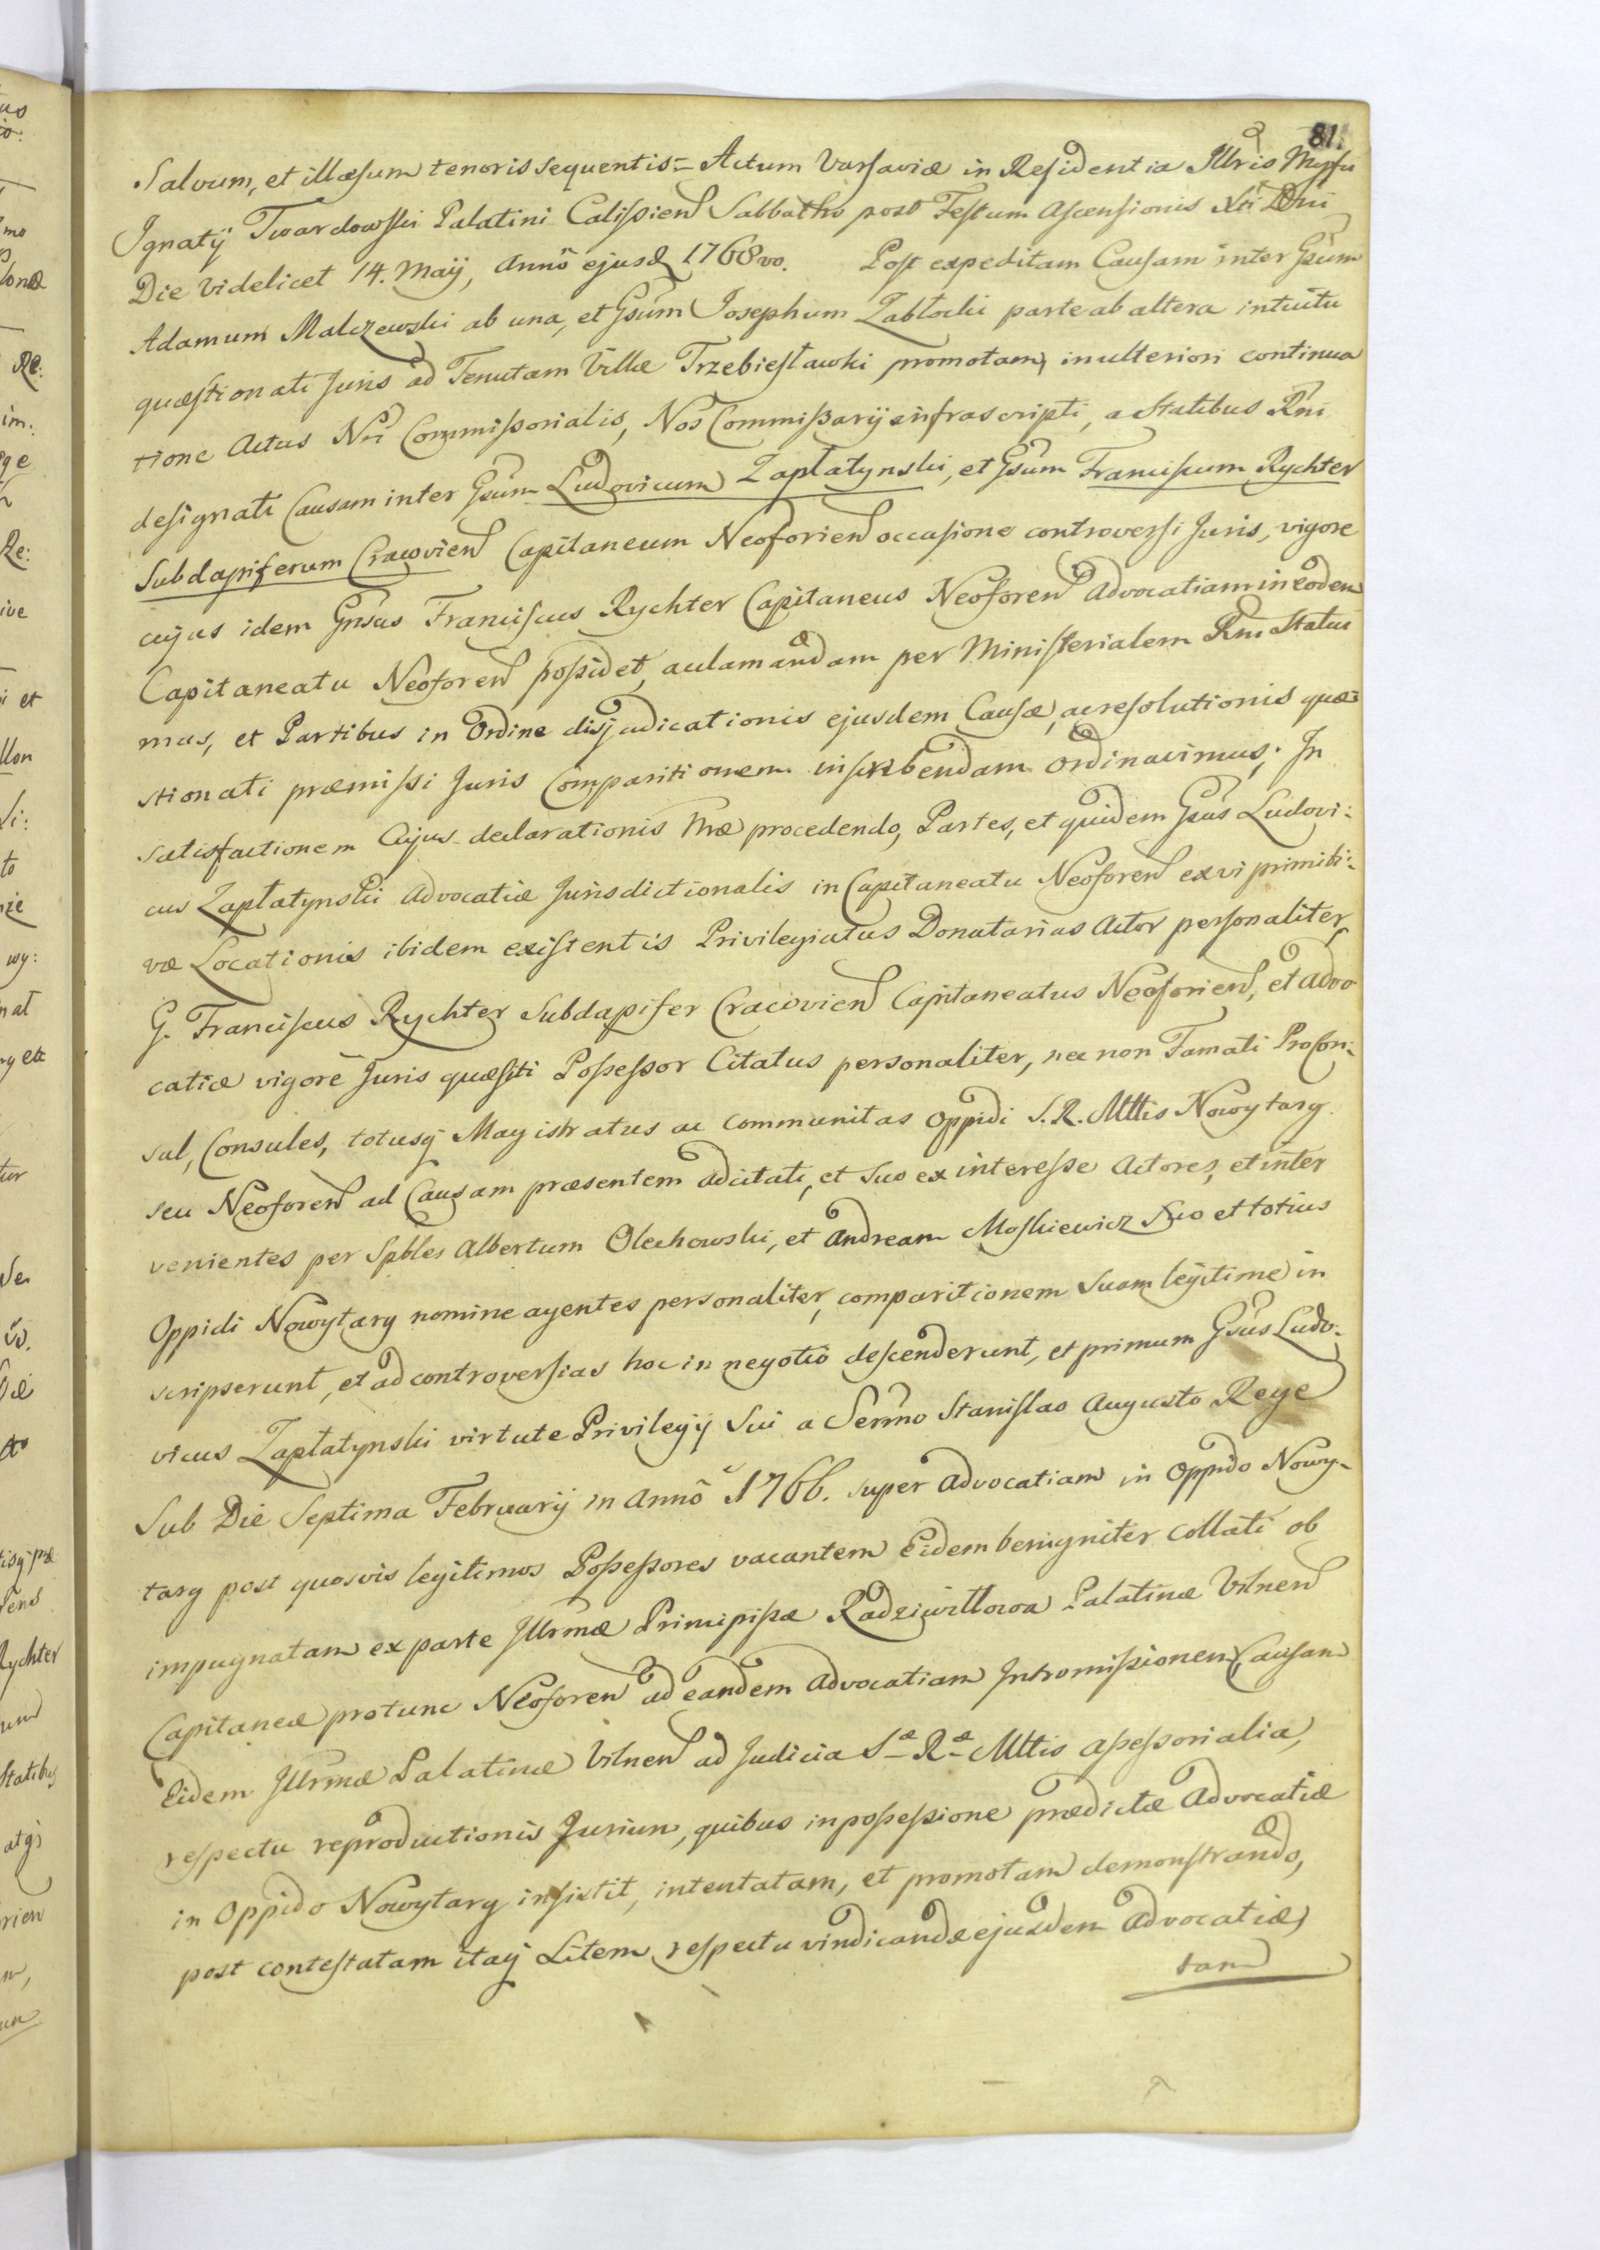 81.
Salvum, et illæsum tenoris sequentis = Actum Varsaviæ in Residentia Illris Mgfci
Ignatij Twardowski Palatini Calissien Sabbatho post Festum Ascensionis Xti Dni
Die videlicet 14. Maij, Annô ejusd 1768vo. Post expeditam Causam inter Gsum
Adamum Malczewski ab una, et Gsum Josephum Zabłocki parte ab altera intuitu
quæstionati Juris ad Tenutam Villæ Trzebiesławki promotam, in ulteriori continua
tione Actus Nri Commissorialis, Nos Commissarij infrascripti, a Statibus Rni
designati Causam inter Gsum Ludovicum Zapłatynski, et Gsum Franciscum Rychter
Subdapiferum Cracovien Capitaneum Neoforien occasione controversi Juris, vigore
cujus idem Gnsus Franciscus Rychter Capitaneus Neoforen Advocatiam in eodem
Capitaneatu Neoforen possidet, aclamandam per Ministerialem Rni Statui
mus, et Partibus in Ordine disjudicationis ejusdem Causæ, ac resolutionis quæ
stionati præmissi Juris Comparitionem inscribendam ordinavimus; In
satisfactionem Cujus declarationis Nræ procedendo, Partes, et quidem Gsus Ludovi:
cus Zapłatynski Advocatiæ Jurisdictionalis in Capitaneatu Neoforen ex vi primiti:
væ Locationis ibidem existentis Privilegiatus Donatarius Actor personaliter,
G. Franciscus Rychter Subdapifer Cracovien Capitaneatus Neoforien, et Advo
catiæ vigore Juris quæsiti Possessor Citatus personaliter, nec non Famati ProCon:
sul, Consules, totusq Magistratus ac communitas Oppidi S. R. Mttis Nowytarg
seu Neoforen ad Causam præsentem adcitati, et Suo ex interesse Actores, et inter
venientes per Spbles Albertum Olechowski, et Andream Moskiewicz Suo et totius
Oppidi Nowytarg nomine agentes personaliter, comparitionem Suam legitime in
scripserunt, et ad controversias hoc in negotio descenderunt, et primum Gsus Ludo:
vicus Zapłatynski virtute Privilegij Sui a Sermo Stanislao Augusto Rege
Sub Die Septima Februarij in Annô 1766. super Advocatiam in Oppido Nowy-
targ post quosvis legitimos Possessores vacantem Eidem benigniter collati ob
impugnatam ex parte Illrmæ Principissæ Radziwiłłowa Palatinæ Vilnen
Capitaneæ protunc Neoforen ad eandem Advocatiam Intromissionem Causam
Eidem Illrmæ Palatinæ Vilnen ad Judicia Sæ Ræ Mttis Assessorialia,
respectu reproductionis Jurium, quibus in possessione prædictæ Advocatiæ
in Oppido Nowytarg insistit, intentatam, et promotam demonstrando,
post contestatam itaq Litem respectu vindicandæ ejusdem Advocatiæ,
tam